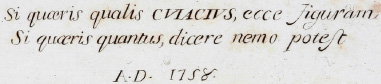 Si quæris qualis CVIACIVS, ecce figuram,
Si quæris quantus, dicere nemo potest
A.D. 1758.